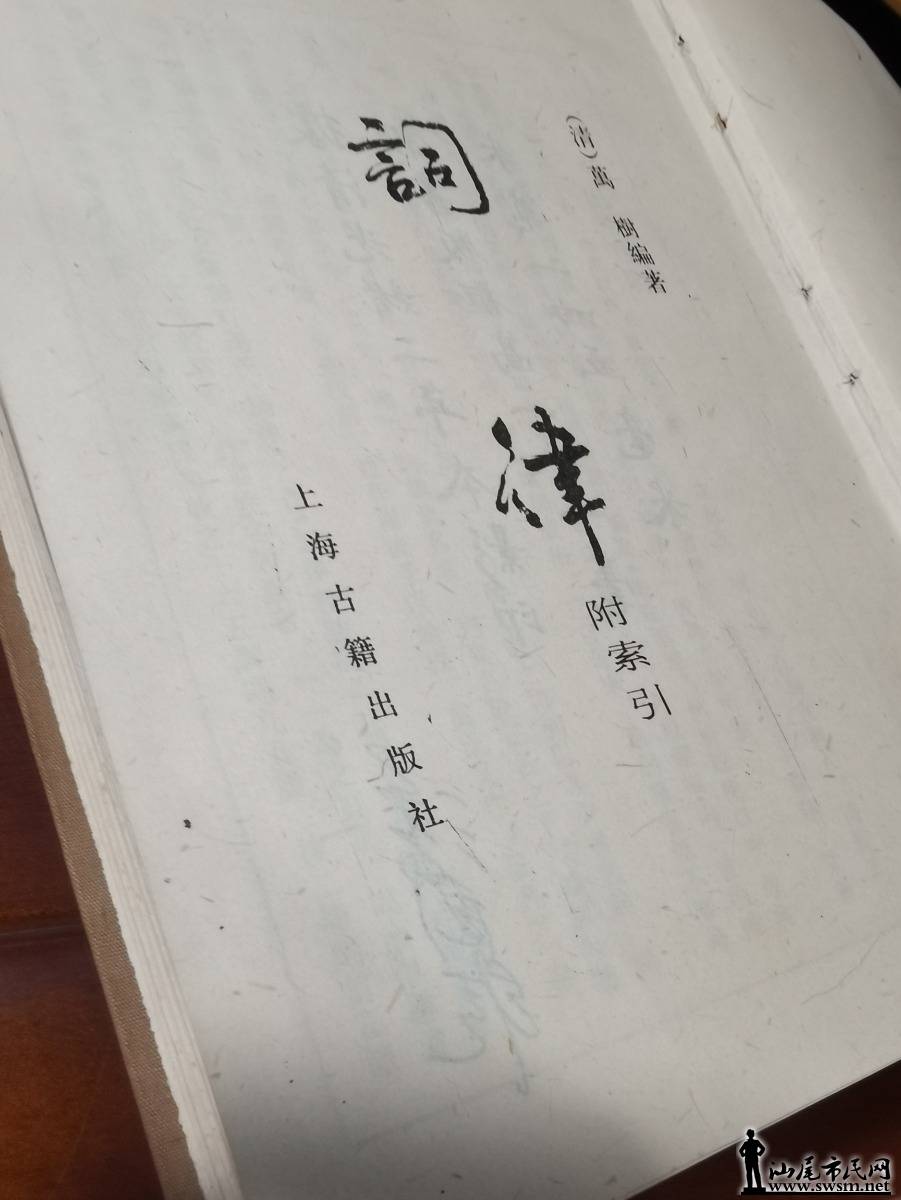 (清)萬 樹編著
詞律
附索引
上海古籍出版社
汕尾市民网
www.swsm.net